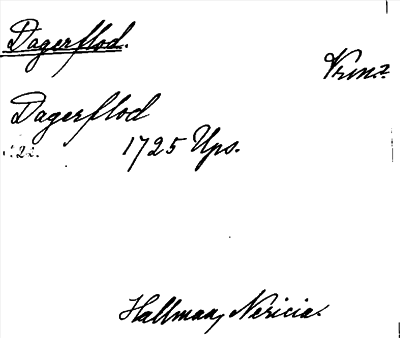 Dagerflod.
Dagerflod
1725 Ups.
Hallman, Nericia.